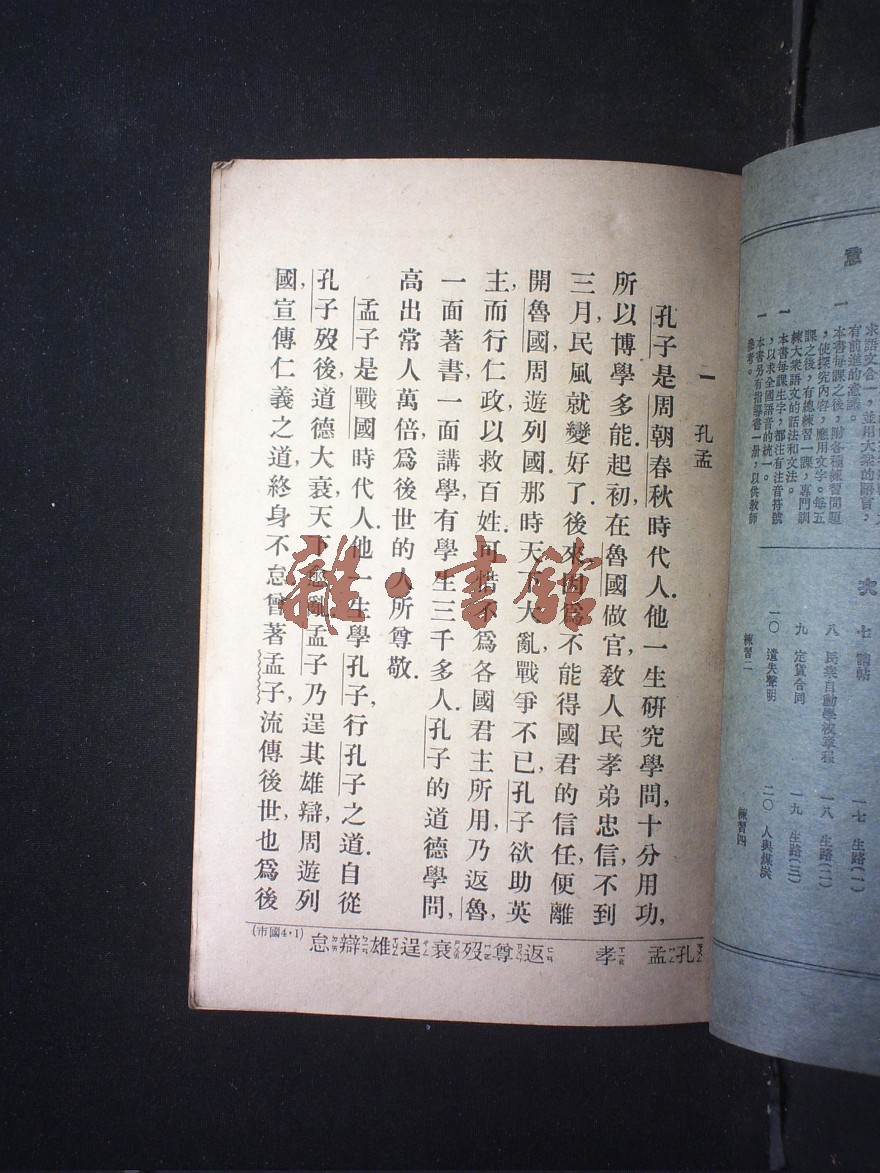 意
求語文合一，並用大衆的語言，
有前進的意識。
一 本書每課之後，附各種練習問題
，使探究內容，應用文字。每五
課之後，有總練習一課，專門訓
練大衆語文的語法和文法。
一 本書每課生字，都注有注音符號
，以求全國語音的統一。
一 本書另有指導書一册，以供教師
參考。
次
七
八 民衆自動學校章程
九 定貨合同
一〇 遺失聲明
練習二
一七 生路(一)
一八 生路(二)
一九 生路(三)
二〇 人與煤炭
練習四
一 孔孟
孔子是周朝春秋時代人．他一生研究學問，十分用功，
所以博學多能．起初在魯國做官，敎人民孝弟忠信，不到
三月，民風就變好了．後來因爲不能得國君的信任，便離
開魯國，周遊列國．那時天下大亂，戰爭不已，孔子欲助英
主，而行仁政，以救百姓．可惜不爲各國君主所用，乃返魯，
一面著書，一面講學，有學生三千多人．孔子的道德學問，
高出常人萬倍，爲後世的人所尊敬．
孟子是戰國時代人．他一生學孔子，行孔子之道．自從
孔子歿後，道德大衰，天下愈亂，孟子乃逞其雄辯，周遊列
國，宣傳仁義之道，終身不怠．曾著孟子，流傳後世，也爲後
孔 孟 孝 返 尊 歿 衰 逞 雄 辯 怠
(市國4·1)
雜·書館